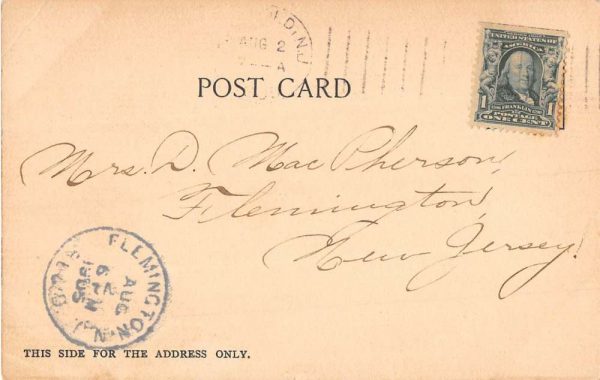 AUG 2
A
POST CARD
UNITED STATES OF
AMERICA
1 FRANKLIN 1
POSTAGE
ONE CENT
Mrs. D. MacPherson,
Flemington,
New Jersey.
FLEMINGTON
N.J.
AUG
1905
THIS SIDE FOR THE ADDRESS ONLY.